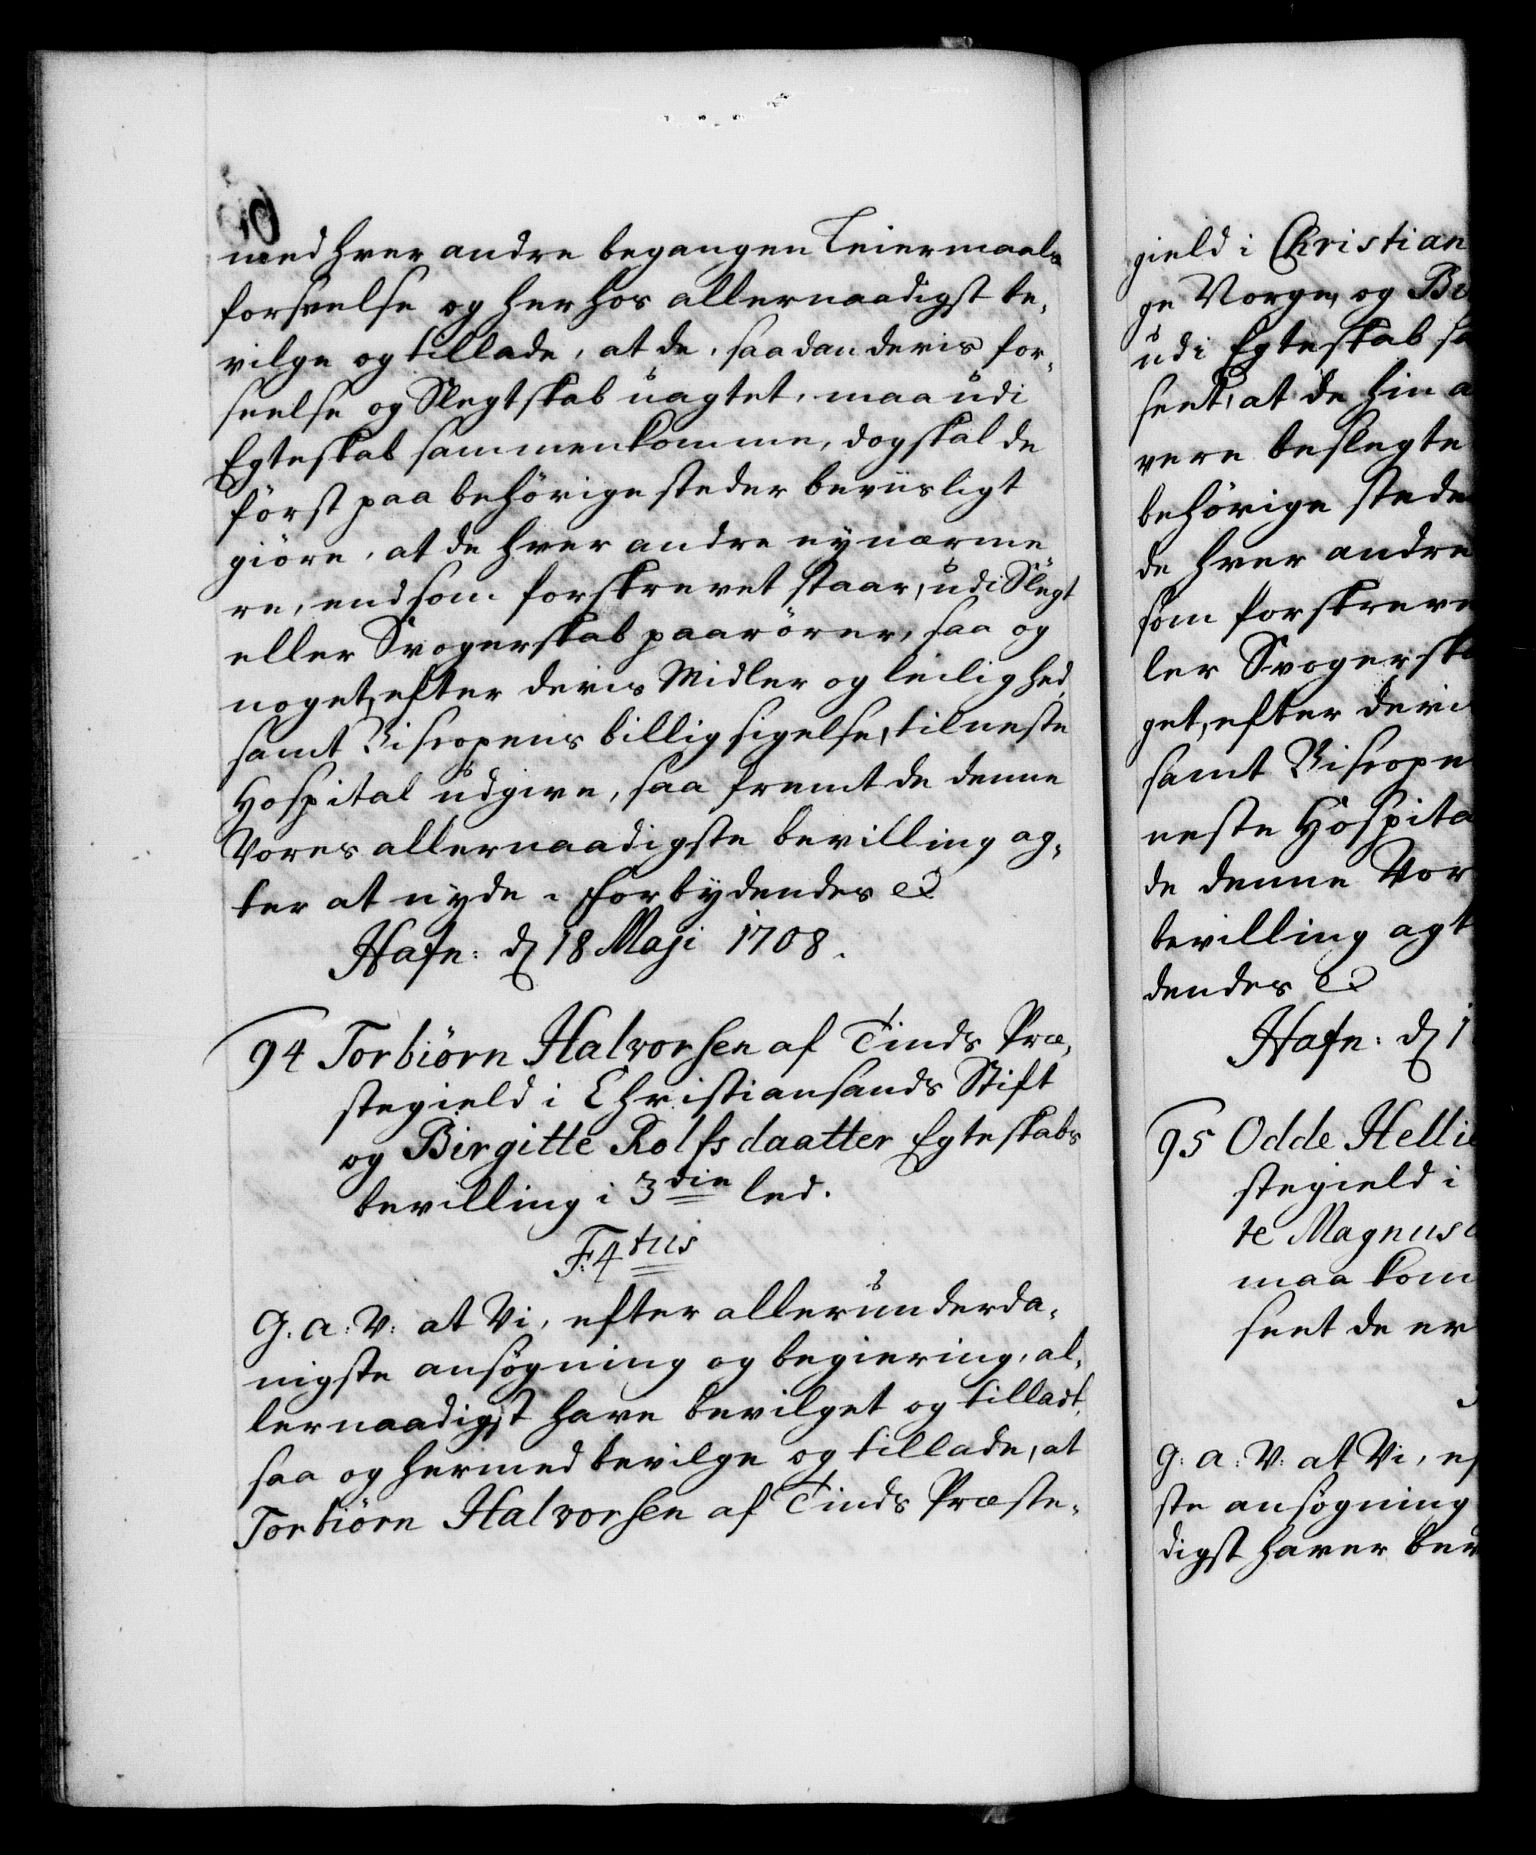 med hver andre begangen Leiermaals
forseelse og herhos allernaadigst be,
vilge og tillade, at de, saadan deris for,
seelse og Slegtskab uagtet, maa udi
Egteskab sammenkomme, dog skal de
först paa behörige steder beviisligt
giöre, at de hver andre ey nærme,
re, end som forskrevet staar, udi Slegt
eller Svogerskab paarörer, saa og
noget, efter deris Midler og leilighed
samt Biscopens billig sigelse, til neste
Hospital udgive, saa fremt de denne
Vores allernaadigste bevilling ag,
ter at nyde. Forbydendes
Hafn: d 18 Maji 1708.
94 Torbiörn Halvorsen af Tinds Præ,
stegield i Christiansands Stift
og Birgitte Rolfsdaatter Egteskabs
bevilling i 3die led.
F. 4tus
G. A: V: at Vi, efter allerunderda,
nigste ansøgning og begiering, al,
lernaadigst have bevilget og tilladt,
saa og hermed bevilge og tillade, at
Torbiörn Halvorsen af Tinds Præste,
gield i Christian
ge Norge, og Bi
udi Egteskab sa
seet, at de hin a
vere beslegte
behörige stede
de hver andre
som forskreve
ler Svogerska
get, efter deri
samt Biscope
neste Hospita
de denne Vor
bevilling agt
dendes
Hafn: d 1
95 Odde Hellie
stegield i
te Magnus
maa kom
seet de er
G: A: V: at Vi, ef
ste ansøgning
digst haver bev